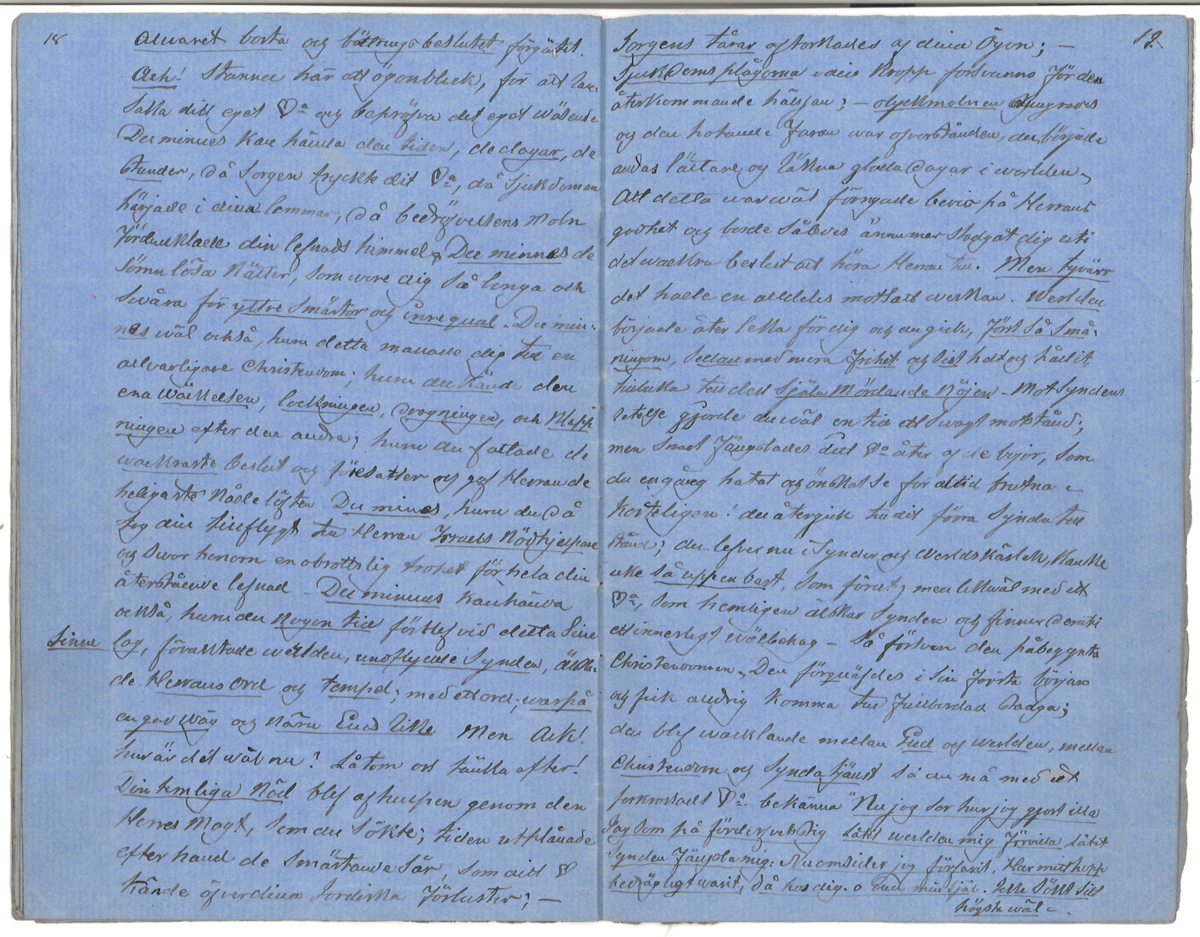 18
allvaret borta och bättringsbeslutet förgätit.
Ach! Stanna här ett ögonblick, för att ran-
saka ditt eget ♡a och bepröfva det eget wäsende
Du minnes kan hända den tiden, de dagar, de
Stunder, då Sorgen tryckte dit ♡a, då Sjukdomen
härjade i dina lemmar, då bedröfvelsens moln
fördunklade din lefnads himmel. Du minnes de
Sömnlösa Nätter, som wore dig så långa och
Swåra för yttre Smärtor och inre qual. Du min-
nes wäl också, huru detta manade dig till en
allvarligare Christendom; huru du kände den
ena Wäckelsen, lockningen, dragningen, och Klapp
ningen efter den andra; huru du fattade de
wackraste beslut och föresatser och gaf Herran de
heligaste löften. Du minnes, huru du då
tog din tillflygt till Herran Israels Nödhjelpare
och Swor honom en obrottslig trohet för hela din
återstående lefnad. Du minnes kanhända
också, huru du Någon tid förblef vid detta Sinne
Sinne lag, föraktade werlden, undflydde Synden, älska-
de Herrans Ord och tempel; med ett ord, war på
en god wäg och nära Guds Rike Men Ack!
hur är det wäl nu! Låtom oss tänka efter!
Din timliga Nöd blef afhulpen genom den
Herres Magt, Som du Sökte; tiden utplånade
efter hand de Smärtande Sår, som ditt ♡
kände öfver dina Jordiska Förluster; —
19.
Sorgens tårar aftorkades af dina Ögon; —
Sjukdoms plågorna i din Kropp försvunno för den
återkommande hälsan; — olyckmolnen
och den hotande Faran war öfverstånden, du började
andas lättare och räkna glada Dagar i werlden.
Allt detta war wäl förnyade bevis på Herrans
godhet och borde Således ännu mer Stadgat dig uti
det wackra beslut att höra Herran till. Men tyvärr
det hade en alldeles motsatt werkan. Werlden
började åter locka för dig och du gick, först Så Små-
ningom, Sedan med mera frihet och Sist
tillbaka till dess Själa Mördande Nöjen. Mot Syndens
retelse gjorde du wäl en tid ett Swagt motstånd;
men Snart fängslades ditt ♡a åter af de bojor, Som
du en gång hatat och önskat Se för alltid brutna.
Korteligen! du återgick till dit förra Synda till
stånd; du lefver nu i Synder och werlds kärlek, kanske
icke Så uppenbart, Som förut; men likwäl med ett
♡a, Som hemligen älskar Synden och finner deruti
ett innerligt wälbehag. Så försvan den påbegynta
Christendomen. Den förqväfdes i Sin första början
och fick aldrig komma till fullbordad Dager;
du blef wacklande mellan Gud och werlden, mellan
Christendom och Syndatjänst Så du må med ett
förkrossadt ♡a bekänna "Nu jag Ser hur jag gjort illa
Jag Som på förderfvets Stig Låtit werlden mig förvilla Låtit
Synden fängsla mig: Nu omsider jag förfarit, Hur mitt hopp
bedrägligt warit, då hos dig, o Gud min Själ. Icke Sökt Sitt
högsta wäl.